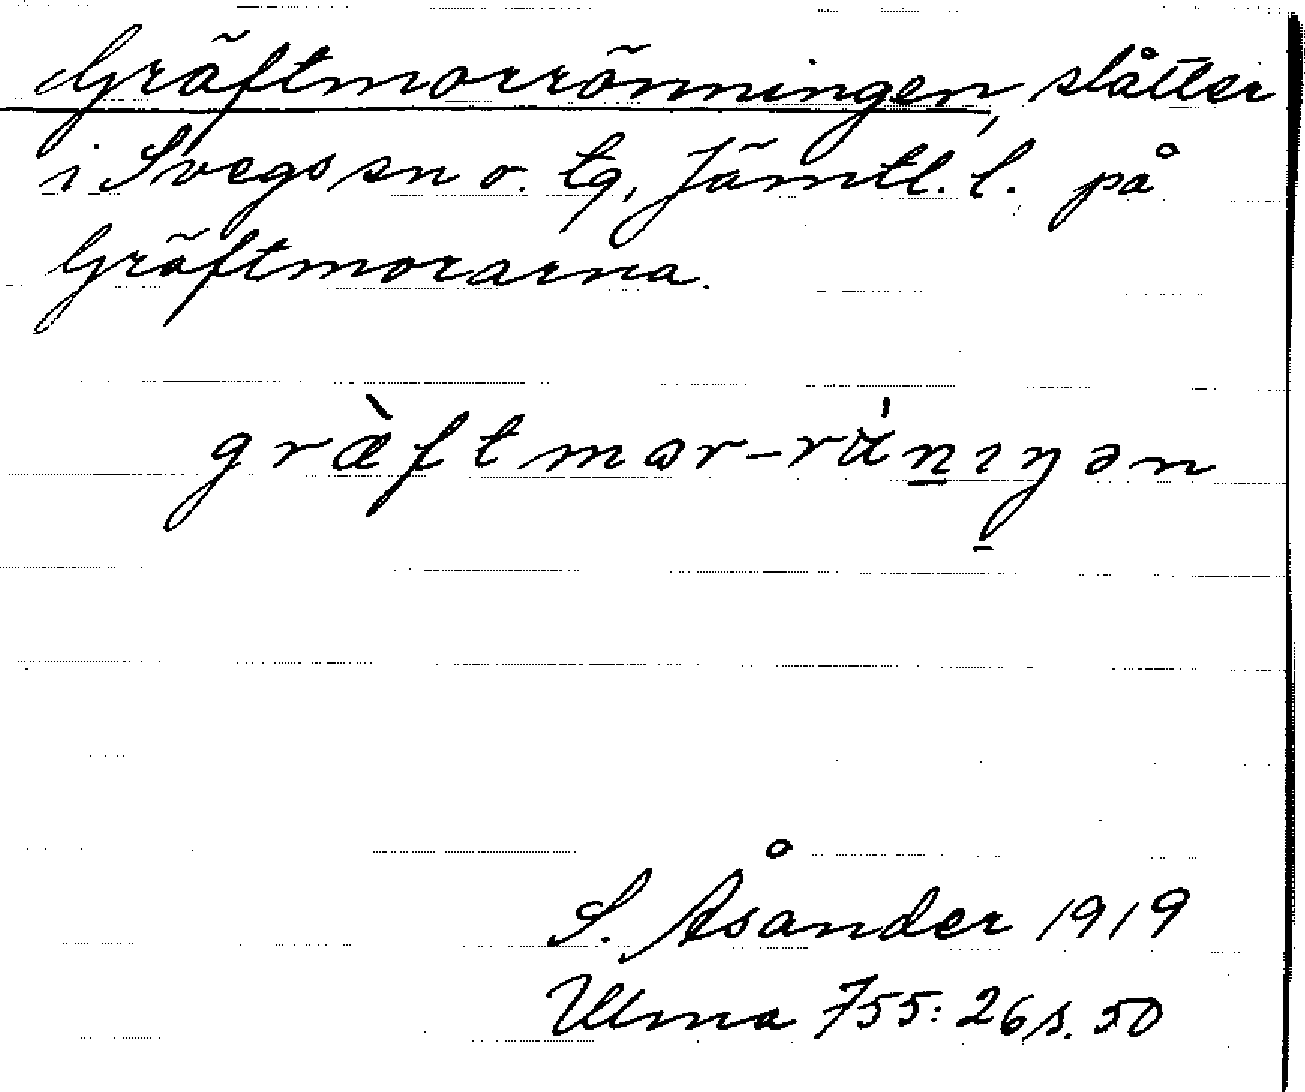 Gräftmorrönningen, slåtter
i Svegs sn o. tg, Jämtl. l. på
Gräftmorarna.
græ̀ftmɷr-rä̍n̠ıŋ̠ən
S. Åsander 1919
Ulma 755:26 s. 50